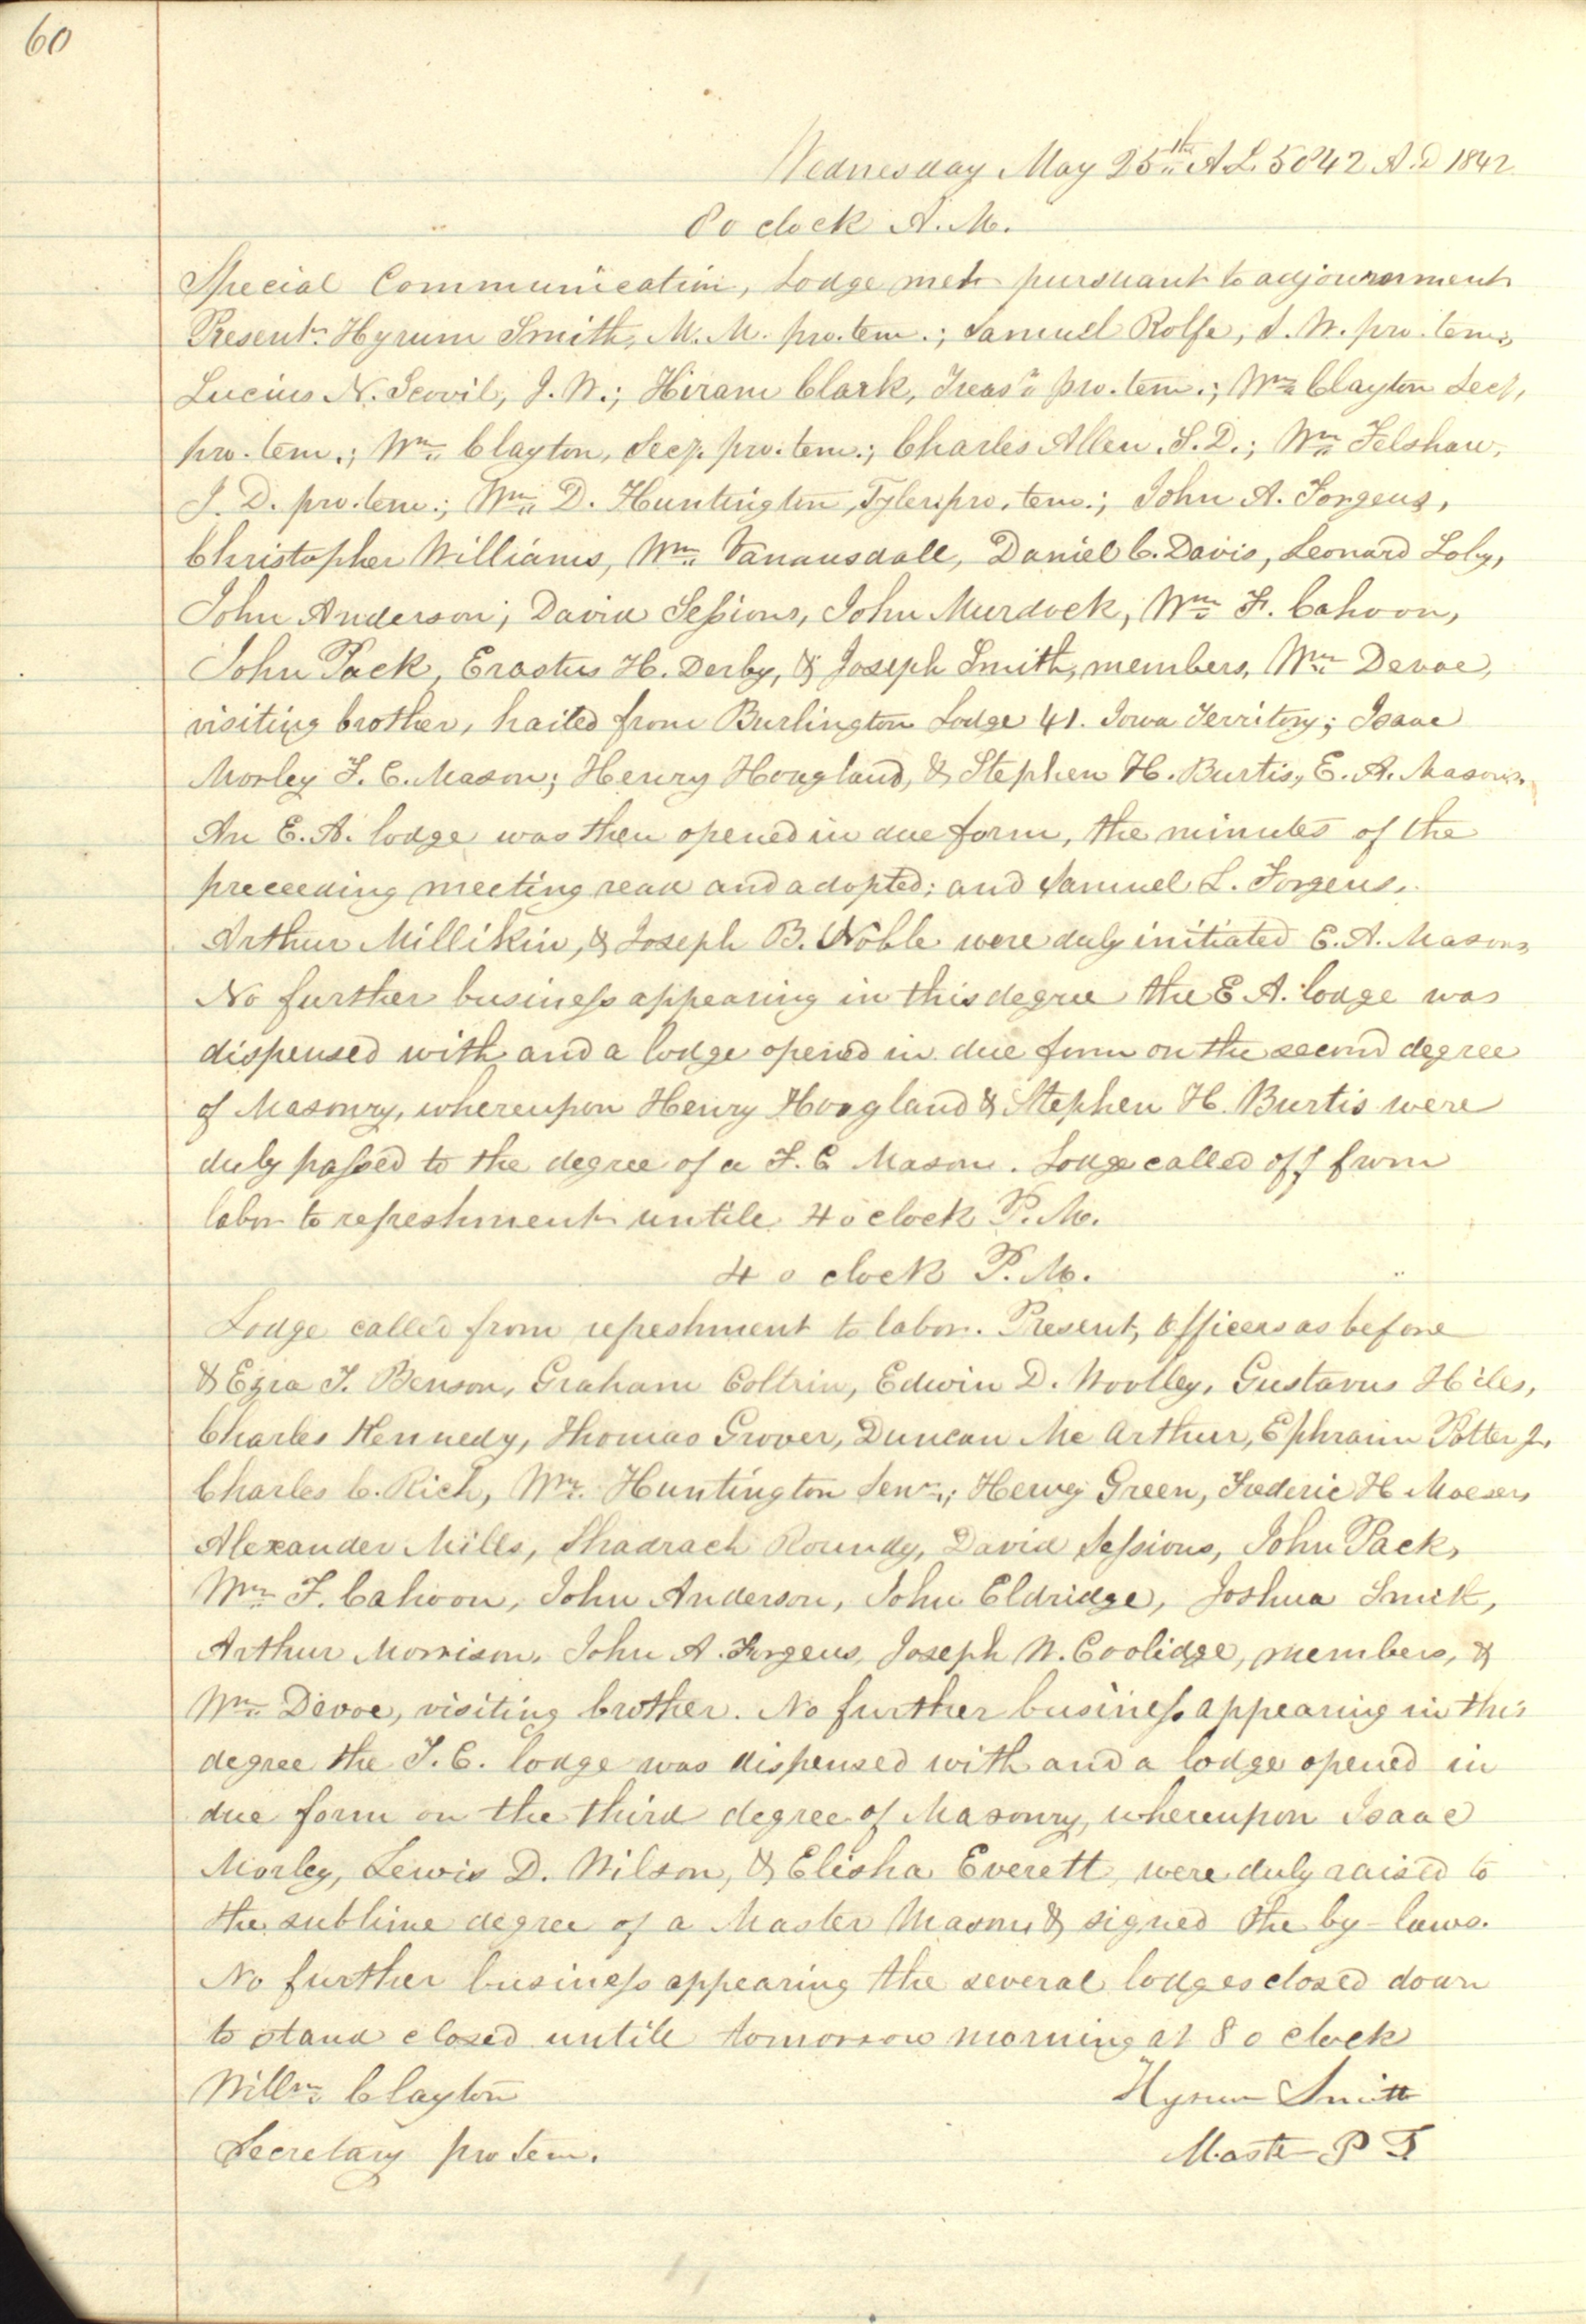 60
Wednesday May 25th A.L. 5842 A.D 1842
8 o clock A.M.
Special Communication, Lodge met pursuant to adjournment
Present. Hyrum Smith, M. M. pro. tem.; Samuel Rolfe, S. W. pro. tem.;
Lucius N. Scovil, J. W.; Hiram Clark, Treasr. pro. tem.; Wm. Clayton Secy,
pro. tem.; Wm. Clayton, Secy. pro. tem.; Charles Allen. S. D.; Wm. Felshaw,
J. D. pro. tem.; Wm. D. Huntington, Tyler. pro. tem.; John A. Forgeus,
Christopher Williams, Wm. Vanausdall, Daniel C. Davis, Leonard Soby,
John Anderson; David Sessions, John Murdock, Wm. F. Cahoon,
John Pack, Erastus H. Derby, & Joseph Smith, members, Wm. Devoe,
visiting brother, hailed from Burlington Lodge 41. Iowa Territory; Isaac
Morley F. C. Mason; Henry Hoagland, & Stephen H. Burtis, E. A. Masons.
An E. A. lodge was then opened in due form, the minutes of the
preceeding meeting read and adopted; and Samuel L. Forgeus,
Arthur Millikin, & Joseph B. Noble were duly initiated E. A. Masons
No further business appearing in this degree the E A. lodge was
dispensed with and a lodge opened in due form on the second degree
of Masonry, whereupon Henry Hoagland & Stephen H. Burtis were
duly passed to the degree of a F. C Mason. Lodge called off from
labor to refreshment untile 4 o clock P. M.
4 o clock P. M.
Lodge called from refreshment to labor. Present, officers as before
& Ezra T. Benson, Graham Coltrin, Edwin D. Woolley, Gustavus Hiles,
Charles Kennedy, Thomas Grover, Duncan Mc Arthur, Ephraim Potter Jr,
Charles C. Rich, Wm. Huntington Senr.; Hervey Green, Frederic H Moeser,
Alexander Mills, Shadrach Roundy, David Sessions, John Pack,
Wm. F. Cahoon, John Anderson, John Eldridge, Joshua Smith,
Arthur Morrison, John A. Forgeus, Joseph W. Coolidge, members, &
Wm. Devoe, visiting brother. No further business appearing in this
degree the F. C. lodge was dispensed with and a lodge opened in
due form on the third degree of Masonry, whereupon Isaac
Morley, Lewis D. Wilson, & Elisha Everett, were duly raised to
the sublime degree of a Master Mason & signed the by-laws.
No further business appearing the several lodges closed down
to stand closed untile tomorrow morning at 8 o clock
Willm. Clayton Hyrum Smith
Secretary pro tem. Master P T